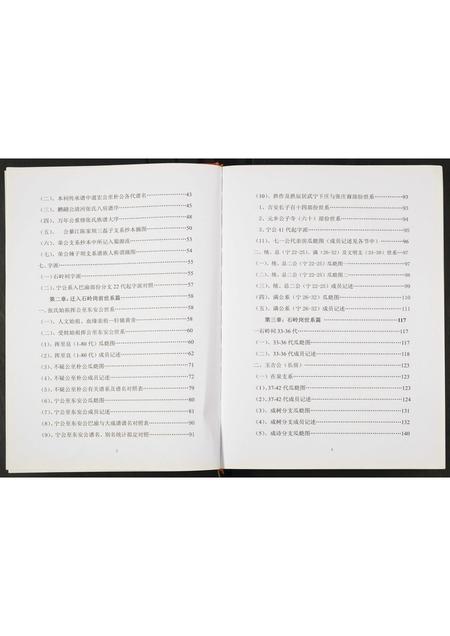 (二)、本柯传承谱中道宏公至朴公各代谱名……43
(三)、鹏翩公清河张氏八房谱序……45
(四)、万年公重修张氏族谱大序……48
(五)、公蓁江陈家坝三磊子支系抄本摘图……50
(六)、荣公支系抄本中所记入蜀源流……53
(七)、荣公棟子坝支系谱族人拓谱摘图……54
七、字派……55
(一)石岭祠字派……55
(二)、宁公系入巴渝部份分支22代起字派对照……57
第二章:迁入石岭岗前世系篇……58
一、张氏始祖挥公至东安公世系……58
(一)、人文始祖、血缘亲祖—轩辕黄帝……58
(二)、受姓始祖挥公至东安公世系……60
(1)、挥至息(1-80代)瓜瓞图……60
(2)、挥至息(1-80代)成员记述……62
(3)、不疑公至朴公瓜瓞图……71
(4)、不疑公至朴公成员记述……72
(5)、不疑公至朴公有关谱系及谱名对照表……79
(6)、宁公至东安公瓜瓞图……80
(7)、宁公至东安公成员记述……81
(8)、宁公至东安公巴渝与大成谱谱名对照表……90
(9)、宁公至东安公谱名、别名统计拟定对照……91
(10)、拱作及拱辰居武宁下庄与张庄前部份世系……93
1、吉安长子百十四部份世系……93
2、元乡公子寺(六十)部份世系……94
3、宁公41代起字派……95
(11)、七一公代亲房瓜瓞图(成员记述见各节中)……96
(一)、殊、总二公(宁22-25)瓜瓞图……98
(三)、殊、总二公(宁22-25)成员记述……99
(四)、满公系(宁26-32)瓜瓞图……110
(五)、满公系(宁26-32)成员记述……111
第三章:石岭岗世系篇……117
一石岭祠33-36代……117
(一)、33-36代瓜瓞图……117
(二)、33-36代成员记述……118
二、玉吉公(长房)……123
(一)在泉支系……123
(1)、37-42代瓜瓞图……123
(2)、37-42代成员记述……124
(3)、成树分支瓜瓞图……131
(4)、成树分支成员记述……132
(5)、成诗分支瓜瓞图……140